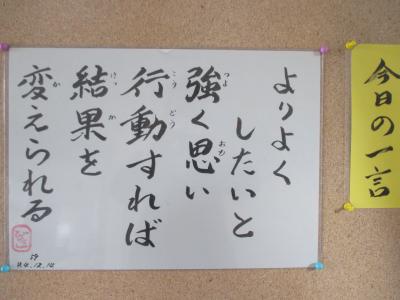 今日の一言
よりよく
したいと
強く思い
行動すれば
結果を
変えられる
つよ
おも
こう どう
けっ か
か
24.12.14